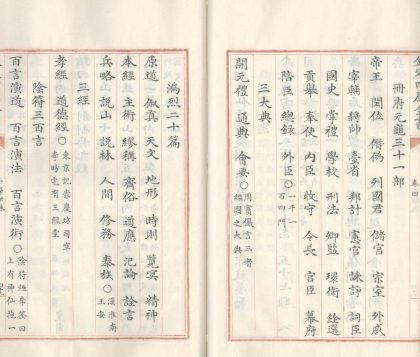 冊府元龜三十一部
帝王 閏位 僭偽 列國君 儲宮 宗室 外戚
宰輔 將帥 臺省 邦計 憲官 諫諍 詞臣
國史 掌禮 學校 刑法 卿監 環衛 銓選
貢舉 奉使 內臣 牧守 令長 宮臣 幕府
陪臣 總錄 外臣〇一千一百四門
三大典
開元禮 通典 會要〇
鴻烈二十篇
原道 俶真 天文 地形 時則 覽冥 精神
本經 主術 繆稱 齊俗 道應 氾論 詮言
兵略 說山 說林 人間 修務 泰族〇漢淮南王安
三經
孝經 道德經〇
陰符三百言
百言演道 百言演法 百言演術〇